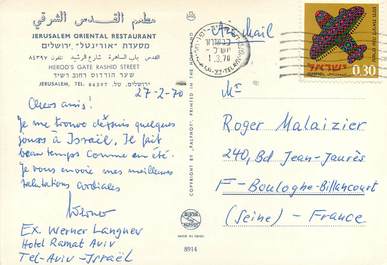 مطعم القدس الشرقي
JERUSALEM ORIENTAL RESTAURANT
מסעדת "אוריינטל" ירושלים
القدس باب الساهرة شارع الرشيد تلفون ٨٤٢٩٧
HEROD'S GATE RASHID STREET
שער הורדוס רחוב רשיד
ירושלים, טל. 84297
JERUSALEM, TEL. 84297
27-2-70
Chers amis!
Je me trouve depuis quelques
jours à Israël. Il fait
beau temps comme en été.
Je vous envoie mes meilleurs
salutations cordiales
Werner
EX. Werner Langner
Hotel Ramat Aviv
Tel-Aviv - Israël
COPYRIGHT BY "PALPHOT". PRINTED IN THE HOLYLAND
MADE IN ISRAEL
8914
Air mail
1.3.70
ישראל
0.30
Mr
Roger Malaizier
240, Bd Jean-Jaurès
F-Boulogne-Billancourt
(Seine) - France